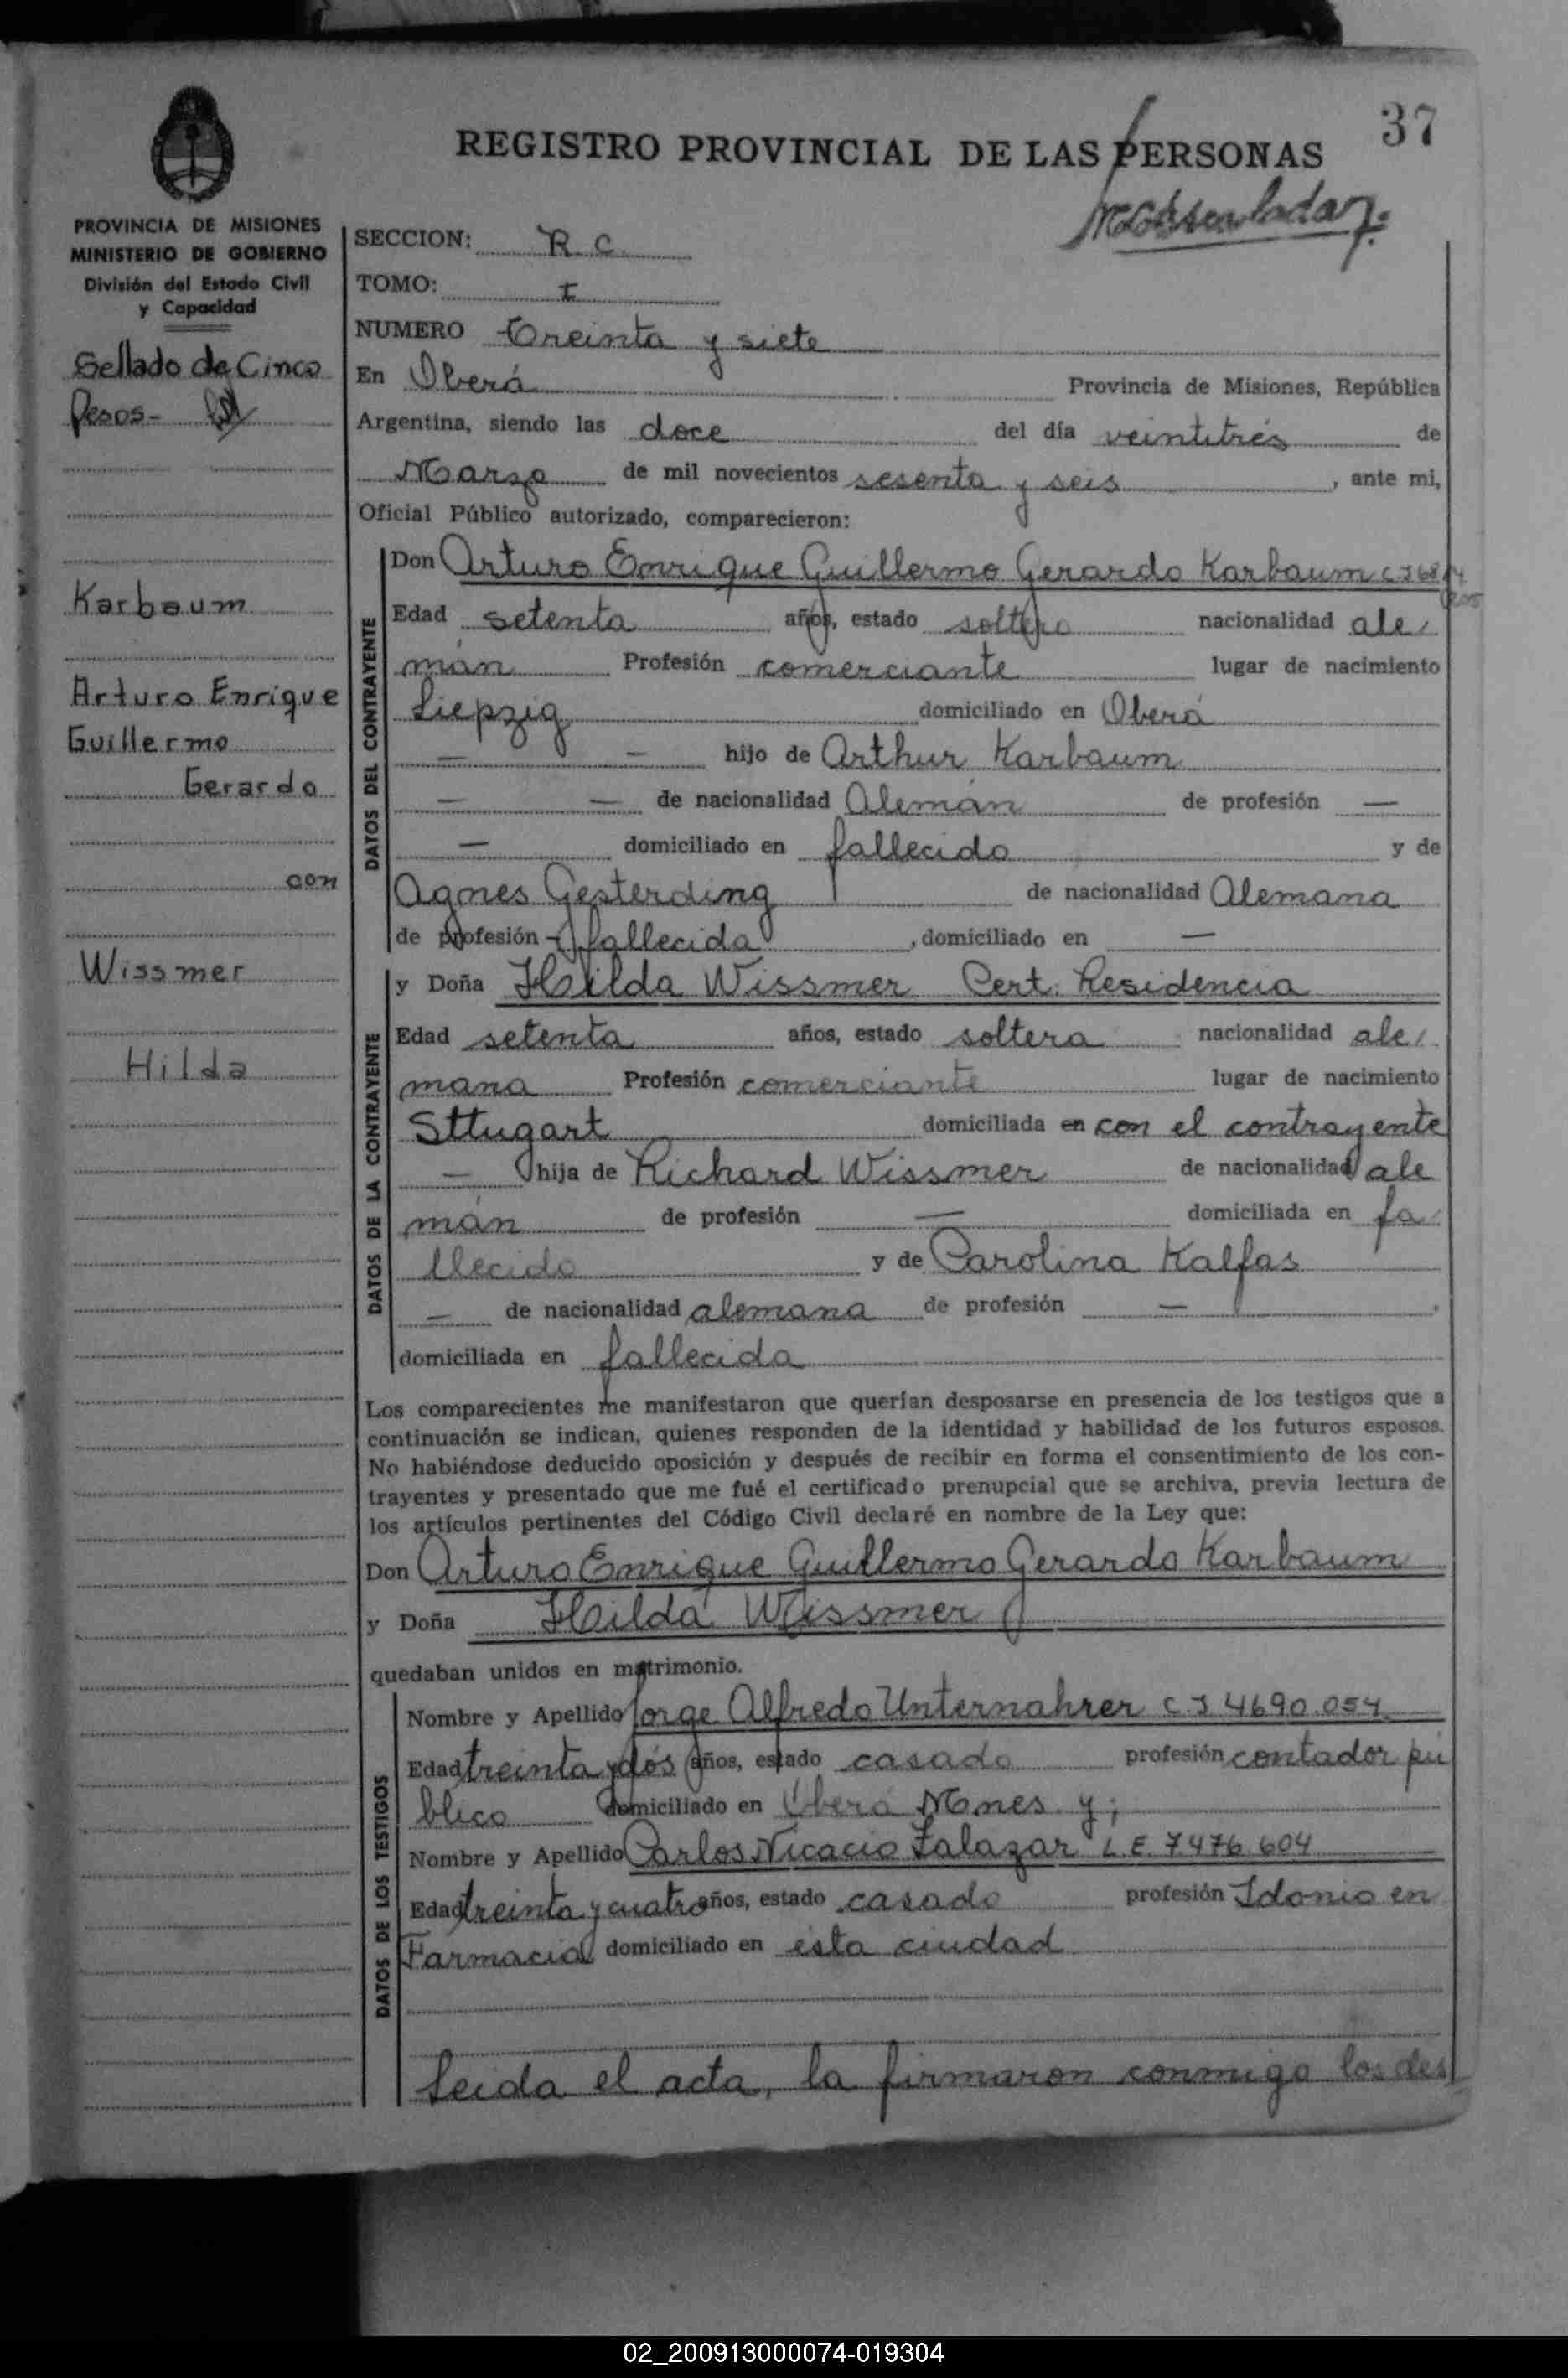 37
REGISTRO PROVINCIAL DE LAS PERSONAS
PROVINCIA DE MISIONES
MINISTERIO DE GOBIERNO
División del Estado Civil
y Capacidad
Sellado de Cinco
Pesos-
Karbaum
Arturo Enrique
Guillermo
Gerardo
con
Wissmer
Hilda
SECCION: R C
TOMO: I
NUMERO Treinta y siete
En Oberá Provincia de Misiones, República
Argentina, siendo las doce del día veintitrés de
Marzo de mil novecientos sesenta y seis, ante mi,
Oficial Público autorizado, comparecieron:
DATOS DEL CONTRAYENTE
Don Arturo Enrique Guillermo Gerardo Karbaum
Edad setenta años, estado soltero nacionalidad ale
mán Profesión comerciante lugar de nacimiento
Liepzig domiciliado en Oberá
— — hijo de Arthur Karbaum
— — de nacionalidad Alemán de profesión —
— domiciliado en fallecido y de
Agnes Gesterding de nacionalidad Alemana
de profesión - fallecida, domiciliado en —
DATOS DE LA CONTRAYENTE
y Doña Hilda Wissmer Cert. Residencia
Edad setenta años, estado soltera nacionalidad ale
mana Profesión comerciante lugar de nacimiento
Sttugart domiciliada en con el contrayente
— hija de Richard Wissmer de nacionalidad ale
mán de profesión — domiciliada en fa
llecido y de Carolina Kalfas
— de nacionalidad alemana de profesión —
domiciliada en fallecida
Los comparecientes me manifestaron que querían desposarse en presencia de los testigos que a
continuación se indican, quienes responden de la identidad y habilidad de los futuros esposos.
No habiéndose deducido oposición y después de recibir en forma el consentimiento de los con-
trayentes y presentado que me fué el certificado prenupcial que se archiva, previa lectura de
los artículos pertinentes del Código Civil declaré en nombre de la Ley que:
Don Arturo Enrique Guillermo Gerardo Karbaum
y Doña Hilda Wissmer
quedaban unidos en matrimonio.
DATOS DE LOS TESTIGOS
Nombre y Apellido Jorge Alfredo Unternahrer C I 4690.054
Edad treinta y dós años, estado casado profesión contador pú
blico domiciliado en Oberá Mnes y;
Nombre y Apellido Carlos Nicacio Salazar L.E. 7.476.604
Edad treinta y cuatro años, estado casado profesión Idonio en
Farmacia domiciliado en ésta ciudad
Leida el acta, la firmaron conmigo los des
02_200913000074-019304